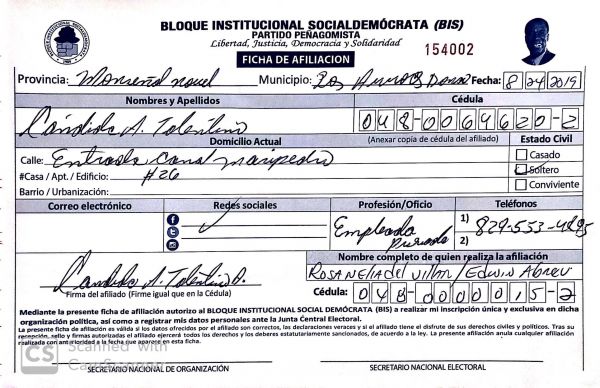 BLOQUE INSTITUCIONAL SOCIALDEMÓCRATA (BIS)
PARTIDO PEÑAGOMISTA
Libertad, Justicia, Democracia y Solidaridad
154002
FICHA DE AFILIACION
Provincia: Monseñor nouel Municipio: Fecha: 8 24 2019
Nombres y Apellidos Cédula
Cándida A. Tolentino 048-0064620-2
Domicilio Actual (Anexar copia de cédula del afiliado) Estado Civil
Calle: Entrada Casa
#Casa / Apt. / Edificio: #26
Barrio / Urbanización:
Casado
Soltero
Conviviente
Correo electrónico Redes sociales Profesión/Oficio Teléfonos
Empleada Privada
1) 829-553-4895
2)
Nombre completo de quien realiza la afiliación
Rosanelia del Villar / Edwin Abreu
Candida A. Tolentino
Firma del afiliado (Firme igual que en la Cédula)
Cédula: 048-0000015-2
Mediante la presente ficha de afiliación autorizo al BLOQUE INSTITUCIONAL SOCIAL DEMÓCRATA (BIS) a realizar mi inscripción única y exclusiva en dicha
organización política, así como a registrar mis datos personales ante la Junta Central Electoral.
La presente ficha de afiliación es válida si los datos ofrecidos por el afiliado son correctos, las declaraciones veraces y si el afiliado tiene el disfrute de sus derechos civiles y políticos. Tras su
recepción, sello y firmas autorizadas el afiliado ejercerá todos los derechos y los deberes estatutariamente sancionados, de acuerdo a la ley. La presente afiliación anula cualquier afiliación
realizada con anterioridad a la fecha que aparece en esta ficha.
CS Scanned with
CamScanner
SECRETARIO NACIONAL DE ORGANIZACIÓN SECRETARIO NACIONAL ELECTORAL